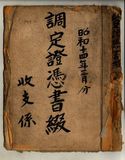 昭和十四年三月分
調定證憑書綴
收支係